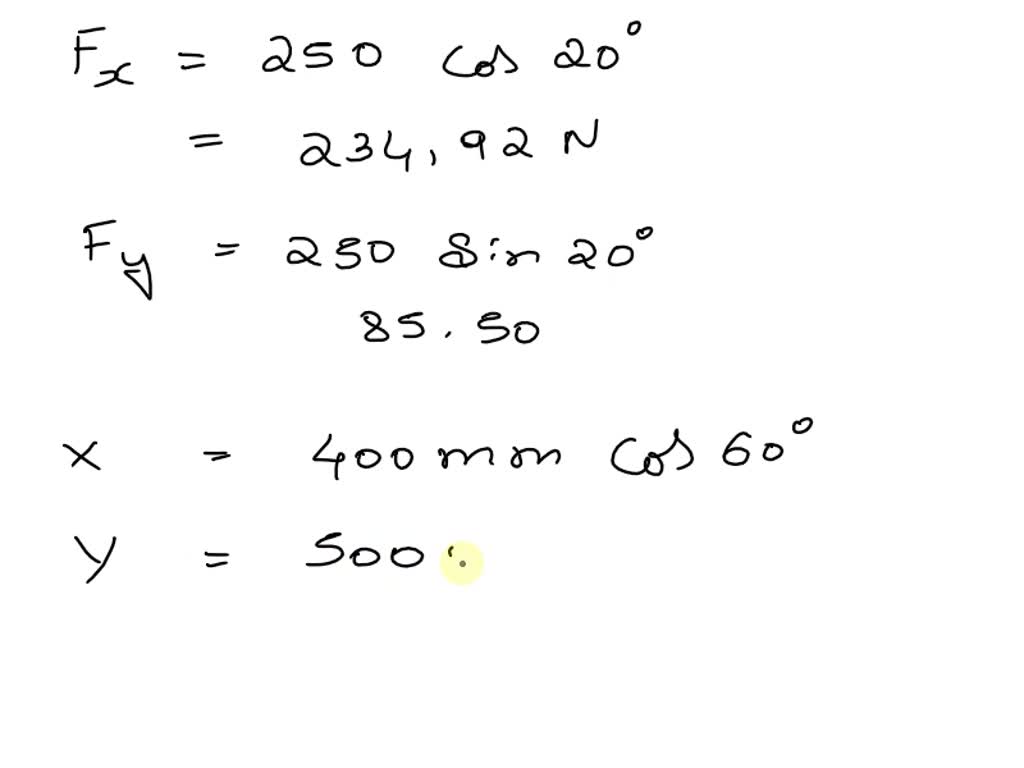 Fx = 250 cos 20°
= 234,92 N
Fy = 250 Sin 20°
85.50
x = 400mm cos 60°
y = 500